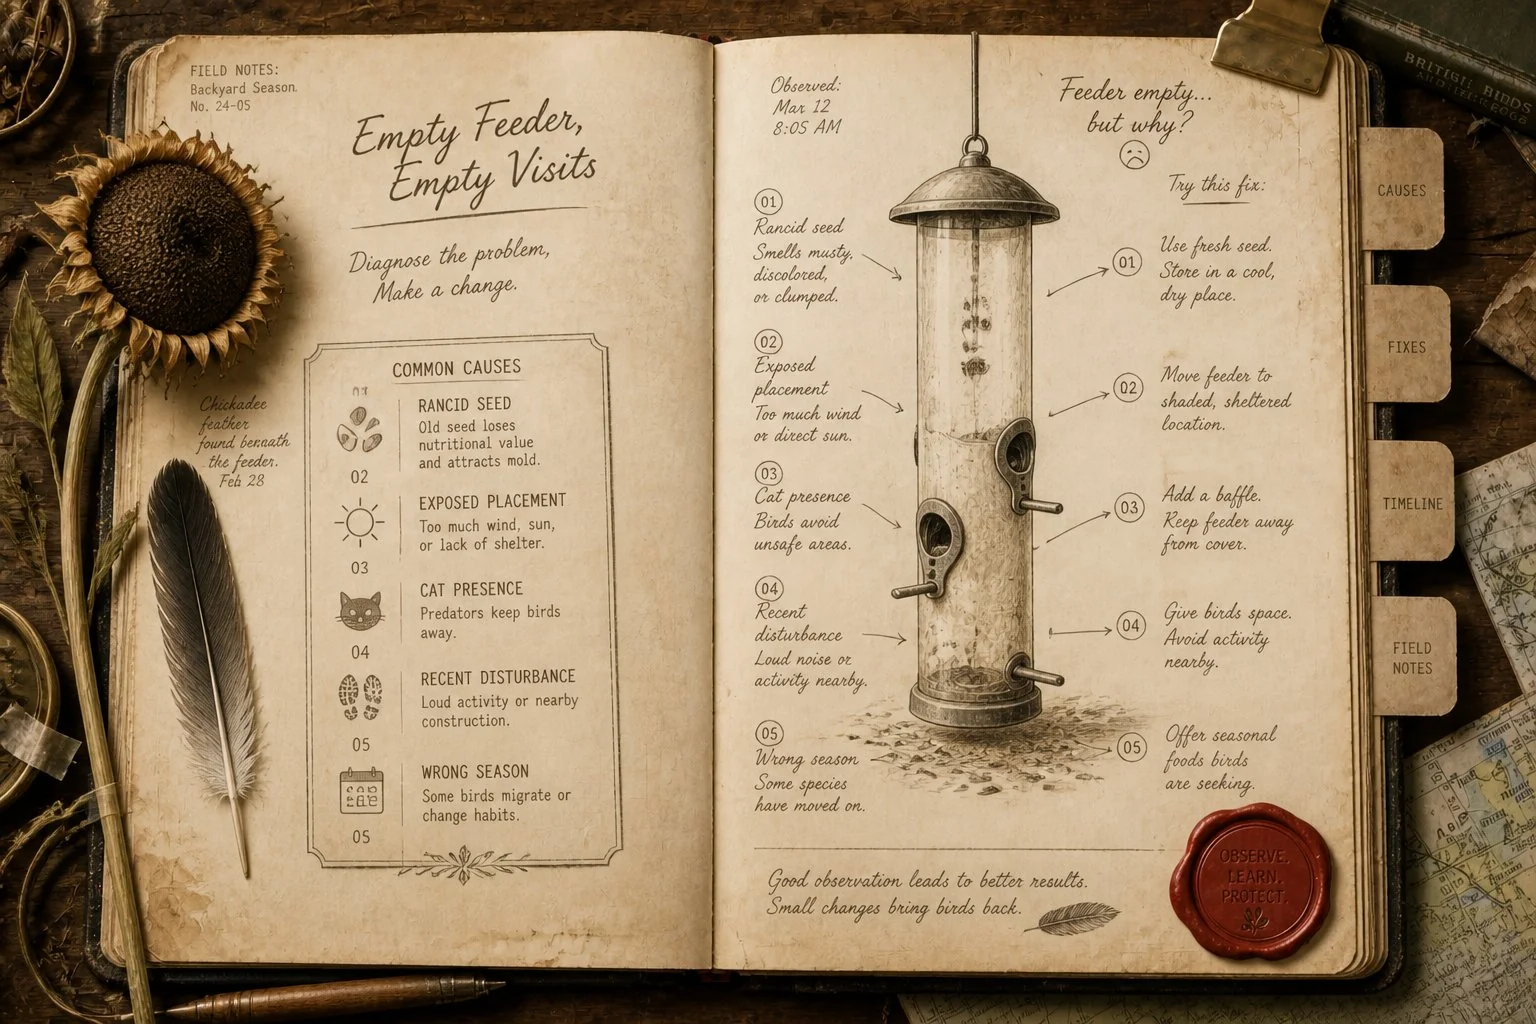 FIELD NOTES:
Backyard Season.
No. 24-05
Empty Feeder,
Empty Visits
Diagnose the problem,
Make a change.
Chickadee
feather
found beneath
the feeder.
Feb 28
COMMON CAUSES
RANCID SEED
Old seed loses
nutritional value
and attracts mold.
02
EXPOSED PLACEMENT
Too much wind, sun,
or lack of shelter.
03
CAT PRESENCE
Predators keep birds
away.
04
RECENT DISTURBANCE
Loud activity or nearby
construction.
05
WRONG SEASON
Some birds migrate or
change habits.
05
Observed:
Mar 12
8:05 AM
Feeder empty...
but why?
Try this fix:
01
Rancid seed
Smells musty,
discolored,
or clumped.
02
Exposed
placement
Too much wind
or direct sun.
03
Cat presence
Birds avoid
unsafe areas.
04
Recent
disturbance
Loud noise or
activity nearby.
05
Wrong season
Some species
have moved on.
01
Use fresh seed.
Store in a cool,
dry place.
02
Move feeder to
shaded, sheltered
location.
03
Add a baffle.
Keep feeder away
from cover.
04
Give birds space.
Avoid activity
nearby.
05
Offer seasonal
foods birds
are seeking.
Good observation leads to better results.
Small changes bring birds back.
OBSERVE.
LEARN.
PROTECT.
CAUSES
FIXES
TIMELINE
FIELD
NOTES
BRITISH BIRDS